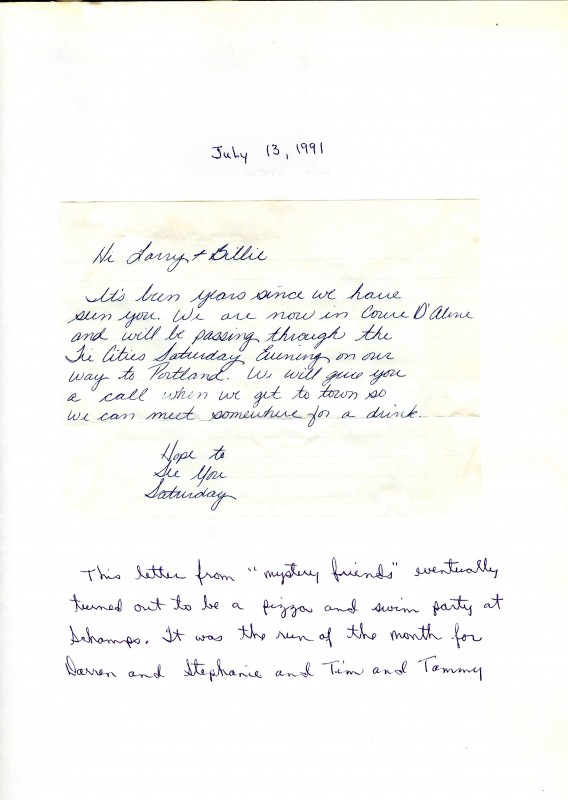 July 13, 1991
Hi Larry + Billie
It's been years since we have
seen you. We are now in Coure D'Alene
and will be passing through the
Tri Cities Saturday Evening on our
way to Portland. We will give you
a call when we get to town so
we can meet somewhere for a drink.
Hope to
See You
Saturday
This letter from "mystery friends" eventually
turned out to be a pizza and swim party at
Schamps. It was the run of the month for
Darren and Stephanie and Tim and Tammy